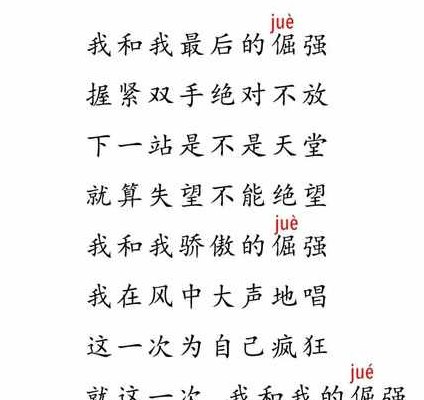 juè
我和我最后的倔强
握紧双手绝对不放
下一站是不是天堂
就算失望不能绝望
juè
我和我骄傲的倔强
我在风中大声地唱
这一次为自己疯狂
jué
就这一次 我和我的倔强